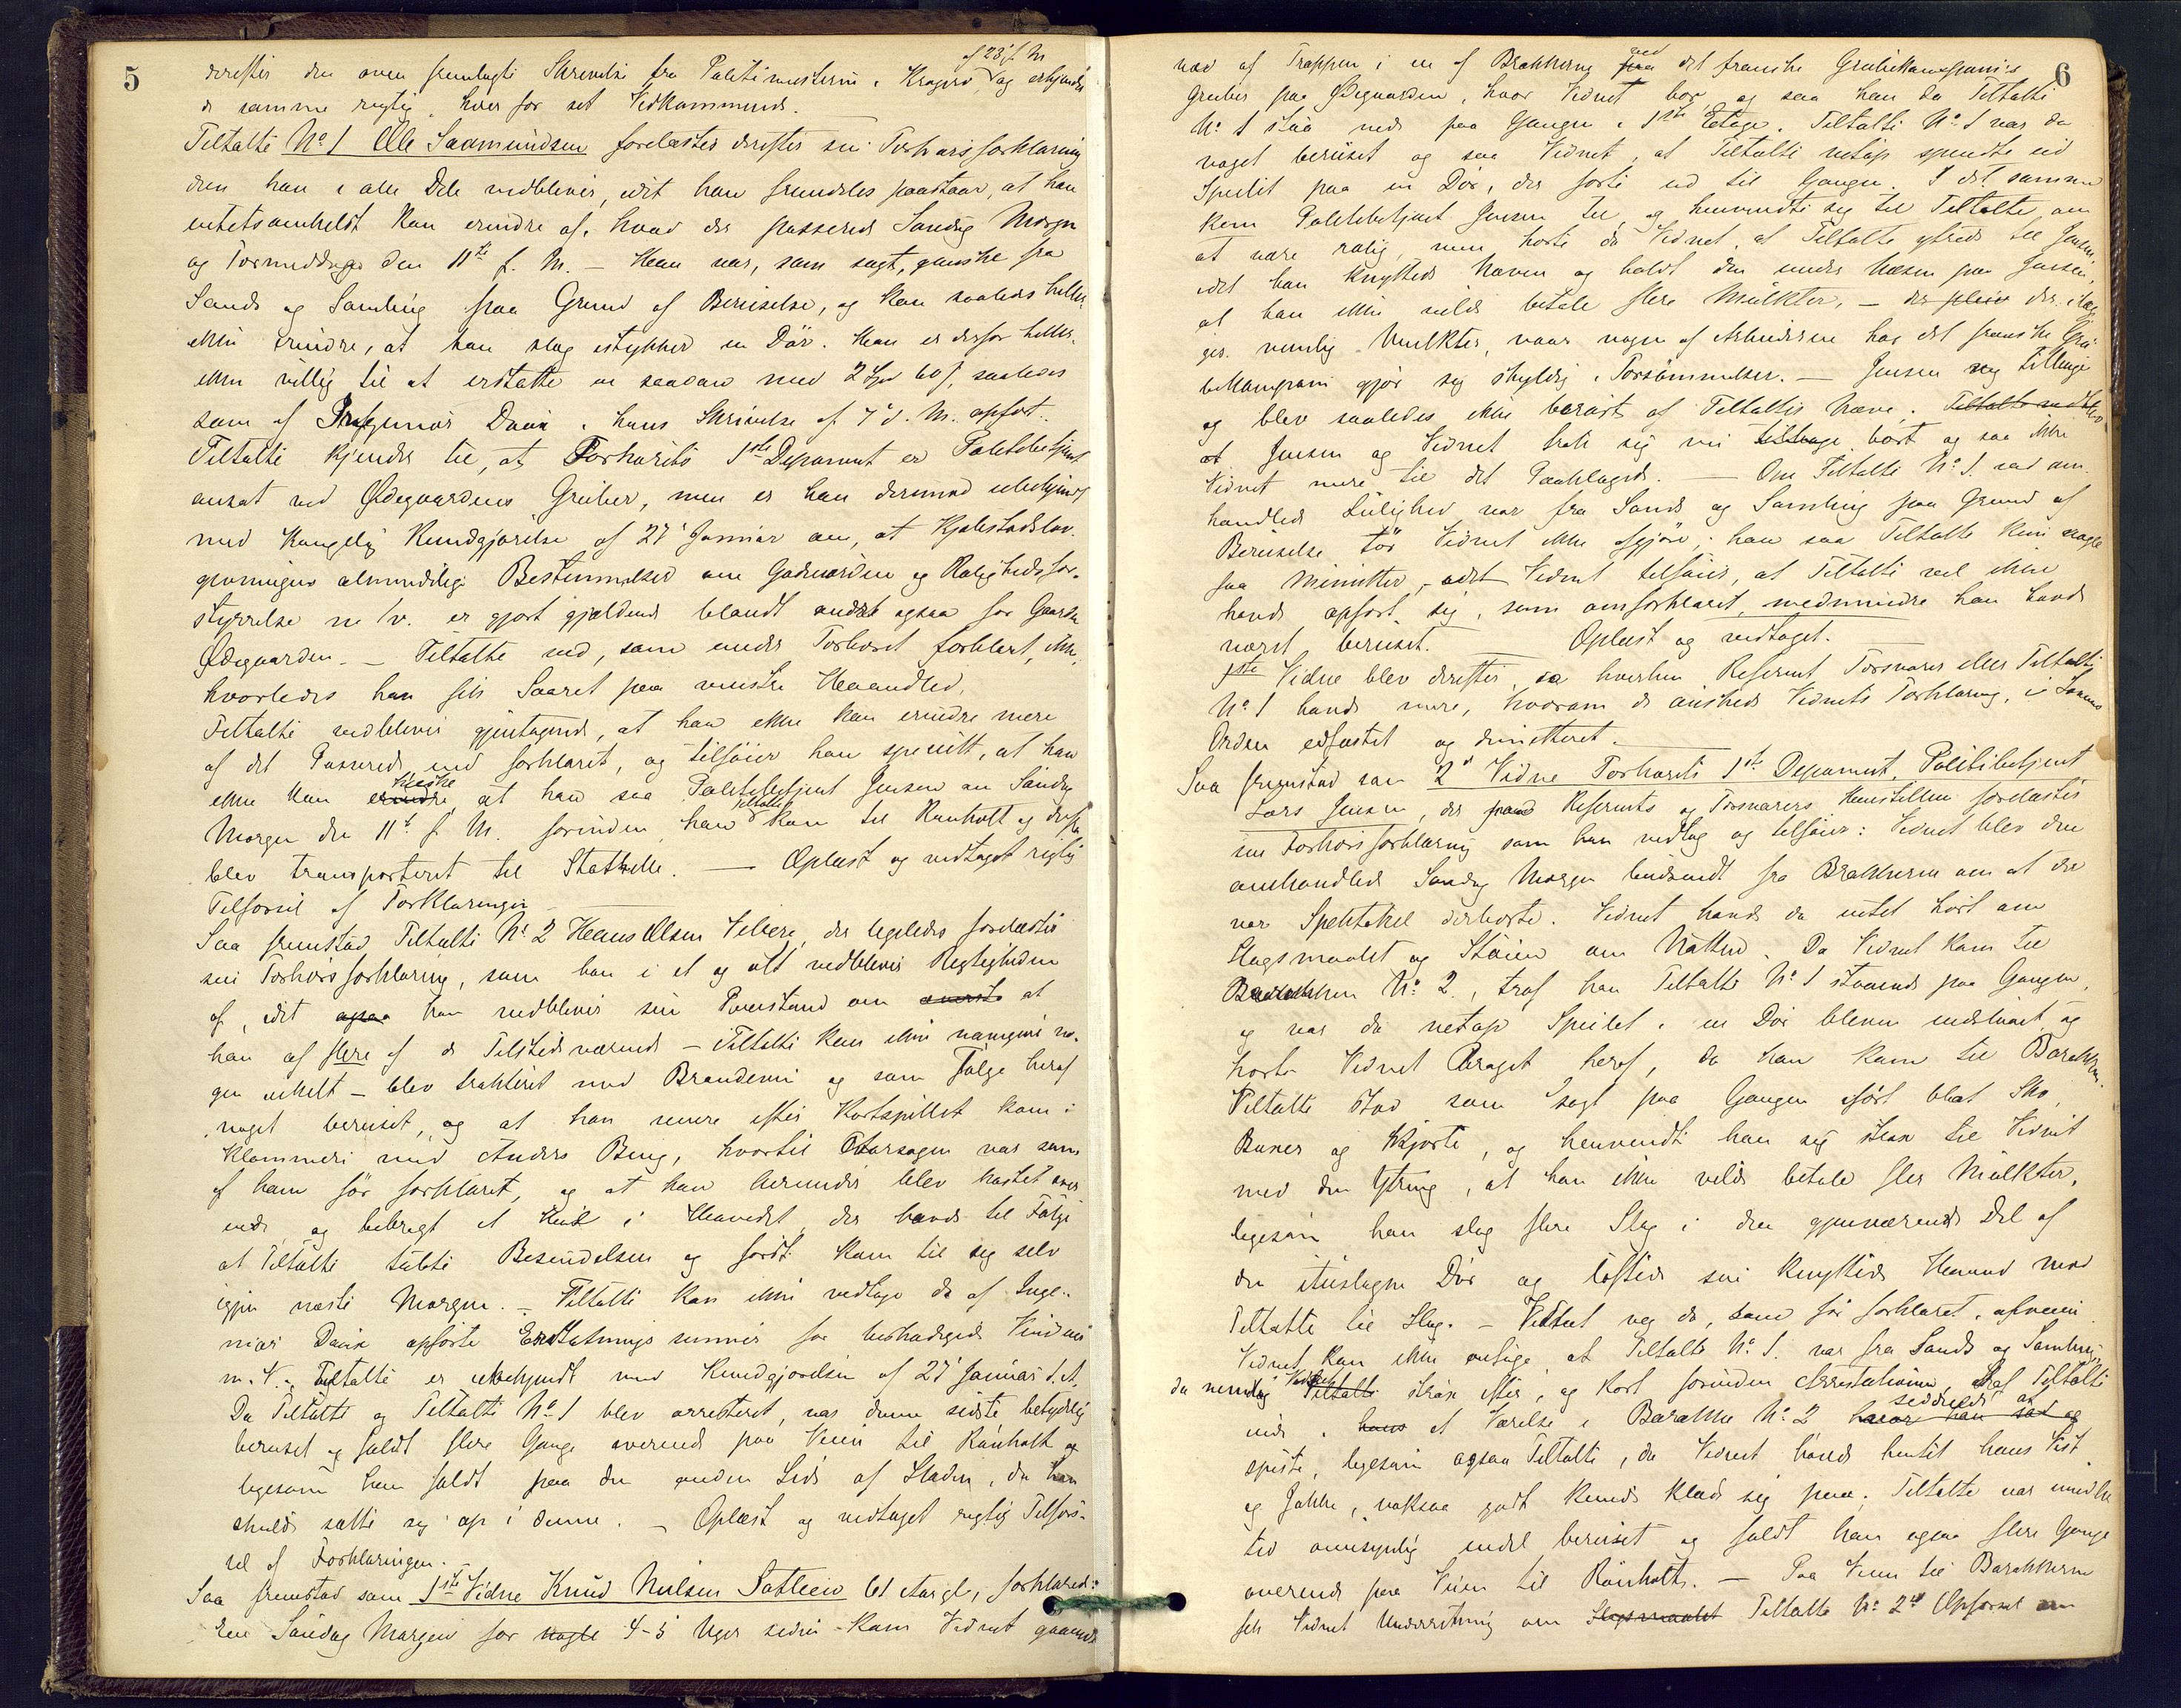 5
derefter den oven fremlagte Skrivelse fra Politimesteren i Kragerø af 23' f. M. og erkjendte
de samme rigtig, hver for sit Vedkommende.
Tiltalte No 1 Ole Saamundsen forelæstes derefter sin Forhørsforklaring
den han i alle Dele vedblever, idet han fremdeles paastaar, at han
intetsomhelst kan erindre af, hvad der passerede Søndag Morgen
og Formiddag den 11te f. M. – Han var, som sagt, ganske fra
Sands og Samling paa Grund af Beruselse, og kan saaledes heller
ikke erindre, at han slog istykker en Dör. Han er derfor heller
ikke villig til at erstatte en saadan med 2 Spd 60 s, saaledes
som af Ingeniör Daux i hans Skrivelse af 7' d. M. opfört.
Tiltalte kjender til, at Forhörets 1ste Deponent er Politibetjent
ansat ved Ødegaardens Gruber, men er han derimod ubekjendt
med Kongelig Kundgjørelse af 27' Januar om, at Kjøbstadslov-
givningens almindelige Bestemmelser om Gadeorden og Roligheds for-
styrrelse m. v. er gjort gjældende blandt andet ogsaa for Gaarden
Ødegaarden. – Tiltalte ved, som under Forhöret forklaret, ikke,
hvorledes han fik Saaret paa venstre Haandled.
Tiltalte vedblever gjentagende, at han ikke kan erindre mere
af det Passerede end forklaret, og tilföier han specielt, at han
ikke kan erindre huske, at han saa Politibetjent Jensen om Söndag
Morgen den 11te f. M. forinden han Tiltalte kom til Rönholt og derfra
blev transporteret til Stathelle. — Oplæst og vedtaget rigtig
Tilførsel af Forklaringen
Saa fremstod Tiltalte No 2 Hans Olsen, der ligeledes forelæstes
sin Forhörsforklaring, som han i et og alt vedblever Rigtigheden
af, idet ogsaa han vedblever sin Paastand om at
han af flere af de Tilstedeværende – Tiltalte kan ikke navngive no-
gen enkelt – blev trakteret med Brændeviin og som Fölge heraf
noget beruset, og at han senere efter Kortspillet kom i
Klammeri med Anders Berg, hvortil Aarsagen var som
af ham för forklaret, og at han herunder blev kastet over
ende og bibragt et Hul i Hovedet, der havde til Fölge
at Tiltalte tabte Besindelsen og först kom til sig selv
igjen næste Morgen. – Tiltalte kan ikke vedtage de af Inge-
niör Daux opförte Erstatningssummer for beskadigede Vinduer
m. V. – Tiltalte er ubekjendt med Kundgjørelsen af 27' Januar d. A.
Da Tiltalte og Tiltalte No 1 blev arresteret, var denne sidste betydelig
beruset og faldt flere Gange overende paa Veien til Rönholt og
ligesom han faldt paa den anden Side af Sladen, da han
skulde sætte sig op i denne. – Oplæst og vedtaget rigtig Tilförs-
sel af Forklaringen.
Saa fremstod som 1ste Vidne Knud Nielsen 61 Aar gl., forklarede:
En Söndag Morgen for nogle 4–5 Uger siden kom Vidnet gaaende
6
ned af Trappen i en af Brakkerne paa ved det franske Grubekompanis
Gruber paa Ødegaarden, hvor Vidnet bor, og saa han da Tiltalte
No 1 staa nede paa Gangen i 1ste Etage. Tiltalte No 1 var da
noget beruset og saa Vidnet, at Tiltalte netop spendte ud
Speilet paa en Dör, der förte ud til Gangen. I det samme
kom Politibetjent Jensen til og henvendte sig til Tiltalte om
at være rolig, men hörte da Vidnet, at Tiltalte ytrede til Jensen,
idet han knyttede Næven og holdt den under Næsen paa Jensen,
at han ikke vilde betale flere Mulkter, – der pleier der ilæg-
ges nemlig Mulkter, naar nogen af Arbeiderne hos det franske Gru-
bekompani gjör sig skyldig i Forsömmelser. — Jensen veg tilbage
og blev saaledes ikke berört af Tiltaltes Næve. Tiltalte
at Jensen og Vidnet trak sig nu tilbage bort og saa ikke
Vidnet mere til det Paaklagede. — Om Tiltalte No 1 ved om-
handlede Leilighed var fra Sands og Samling paa Grund af
Beruselse tör Vidnet ikke afgjöre; han saa Tiltalte kun nogle
faa Minutter, – idet Vidnet tilföier, at Tiltalte vel ikke
havde opfört sig, som omforklaret, medmindre han havde
været beruset. — Oplæst og vedtaget.
1ste Vidne blev derefter, da hverken Referent Forsvarer eller Tiltalte
No 1 havde mere, hvorom de önskede Vidnets Forklaring, i Lovens
Orden edfæstet og dimitteret.
Saa fremstod som 2' Vidne Forhörets 1ste Deponent, Politibetjent
Lars Jensen, der paa Referents og Forsvarers Henstillen forelæstes
sin Forhörsforklaring som han vedtog og tilföier: Vidnet blev den
omhandlede Söndag Morgen budsendt fra Brakkerne om at der
var Spektakel derborte. Vidnet havde da intet hört om
Slagsmaalet og Stöien om Natten. Da Vidnet kom til
Barakken No 2, traf han Tiltalte No 1 staaende paa Gangen,
og var da netop Speilet i en Dör bleven indslaaet, og
hörte Vidnet Braget heraf, da han kom til Barakken.
Tiltalte stod som sagt paa Gangen iført blot Sko,
Buxer og Skjorte, og henvendte han sig strax til Vidnet
med den Ytring, at han ikke vilde betale fler Mulkter,
ligesom han slog flere Slag i den gjenværende Del af
den ituslagne Dör og löftede sin knyttede Haand mod
Tiltalte til Slag. – Vidnet veg da, som för forklaret, afveien.
Vidnet kan ikke antage at Tiltalte No 1 var fra Sands og Samling,
da nemlig Tiltalte Vidnet strax efter, og kort forinden Arrestationen, traf Tiltalte
inde i hans et Værelse i Barakke No 2 hvor han sad og siddende at
spise, ligesom ogsaa Tiltalte, da Vidnet havde hentet hans Vest
og Jakke, noksaa godt kunde klæde sig paa. Tiltalte var imidler
tid öiensynlig endel beruset og faldt han ogsaa flere Gange
overende paa Veien til Rönholt. – Paa Veien til Barakkerne
fik Vidnet Underretning om Slagsmaalet Tiltalte No 2's Opførsel om